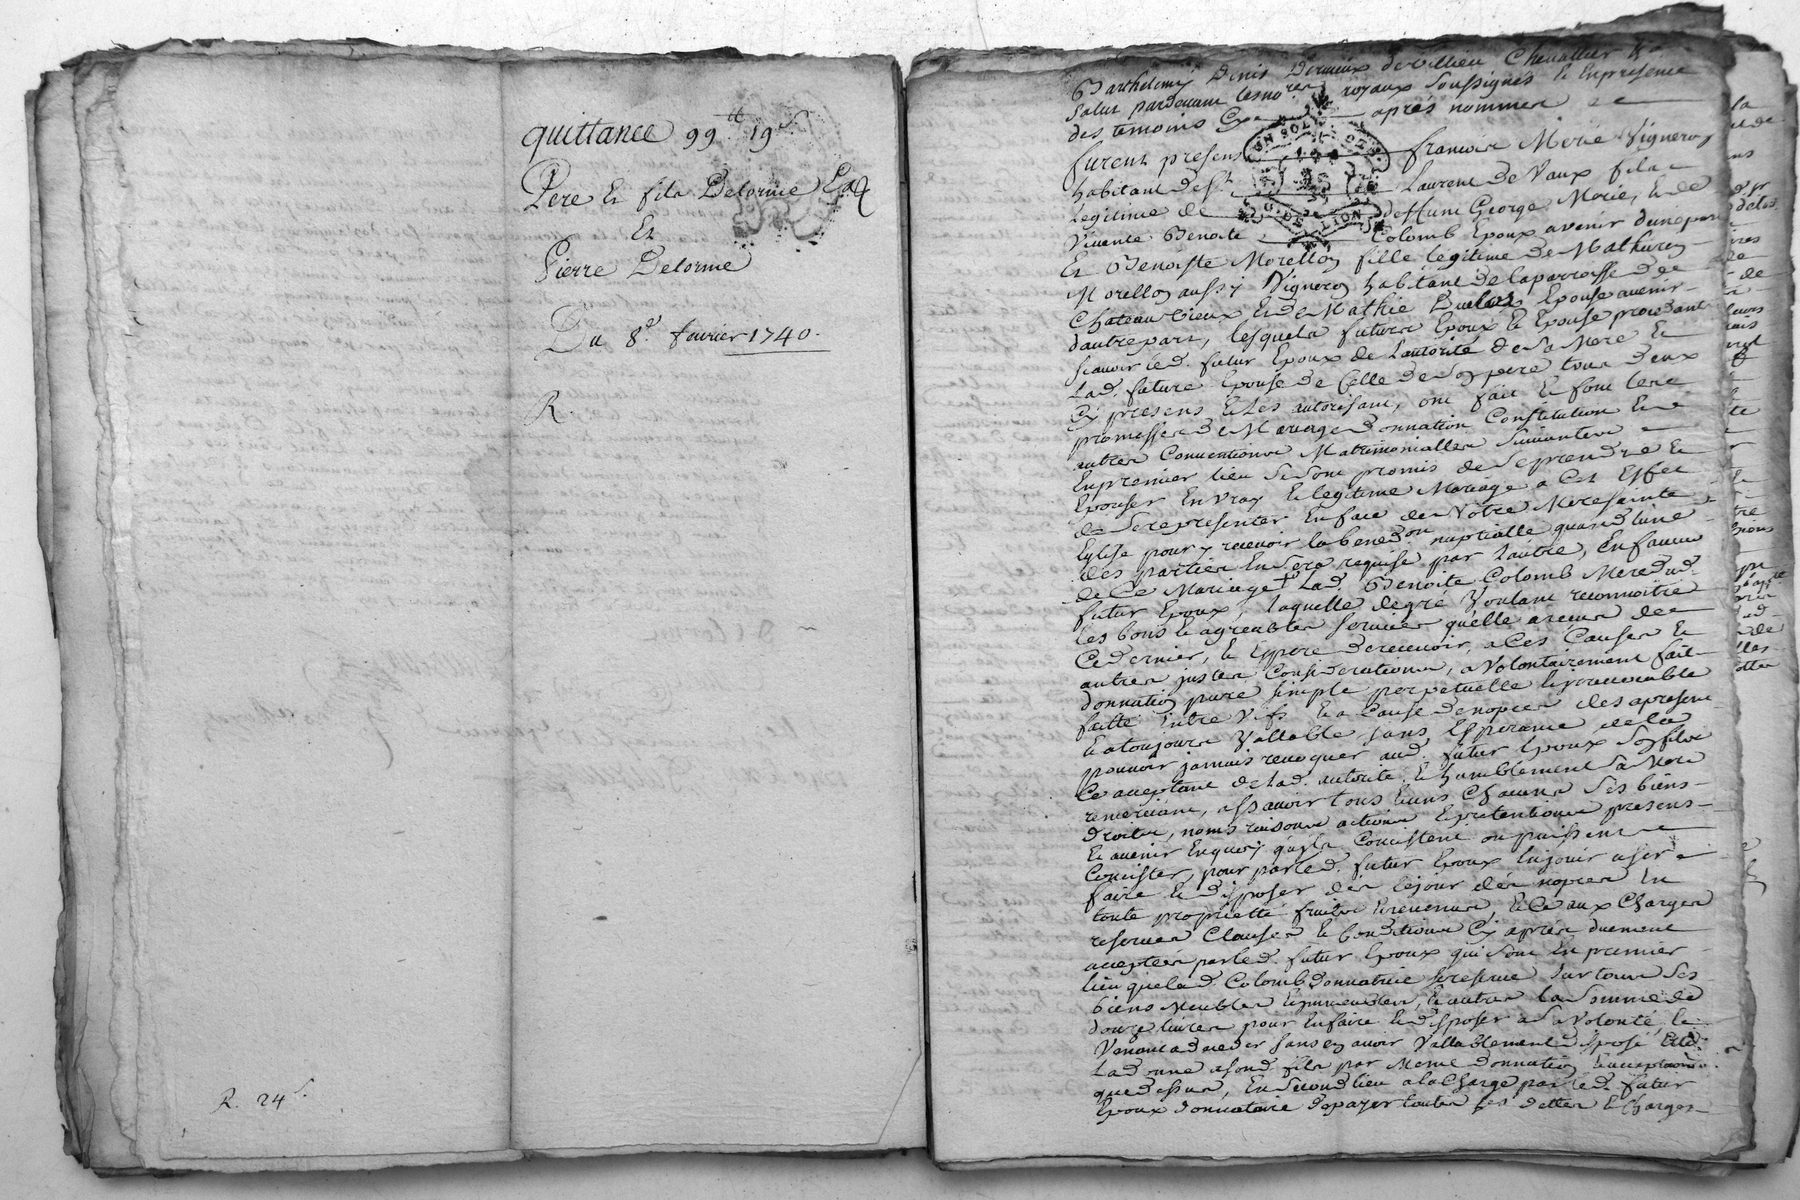 quittance 99 tt 19 s
Pere Et fils Delorme
Et
Pierre Delorme
Du 8e. fevrier 1740.
R.
R. 24 s.
Barthelemy Denis Dervieux de Villieu Chevallier &a
salut pardevant les no.res royaux soussignés Et En presence
des temoins Cy apres nommes
furent presens francois Morié Vigneron
habitant de St. Laurent de Vaux fils
legitime de deffunt George Morié, Et de
Vivante Benoite Colomb Epoux avenir dune part
Et Benoiste Morellon fille legitime de Mathurin
Morellon aussy Vigneron habitant de la parroisse de
Chateau Vieux Et de Mathie Epouse avenir
dautre part, lesquels futurs Epoux Et Epouse procedant
scavoir led. futur Epoux de Lautorité de Sa Mere Et
Lad. future Epouse de Celle de Son pere tous deux
Cy presens Et Les autorisant, ont fait Et font les
promesses de Mariage donnation Constitution Et
autres Conventions Matrimonialles Suivantes
En premier lieu Se Sont promis de Se prendre Et
Epouser En vray Et legitime Mariage a Cet Effet
de Se representer En face de Notre Mere Sainte
Eglise pour y recevoir la bened.on nuptialle quand lune
des parties En Sera requise par Lautre, En faveur
de Ce Mariage Lad. Benoite Colomb Mere dud.
futur Epoux, laquelle de gré Voulant reconnoitre
les bons Et agreables Services quelle a recus de
Ce dernier, Et Espere de recevoir, a Ces Causes Et
autres justes Considerations, a Volontairement fait
donnation pure simple perpetuelle Et irrevocable
faitte Entre Vifs Et a Cause de nopces des apresent
Et a toujours Vallable sans Esperance de la
pouvoir jamais revoquer aud. futur Epoux Son fils
Ce acceptant de Lad. autorité, Et humblement Sa Mere
remerciant, assavoir tous Et uns Chacuns Ses biens
droits, noms raisons actions Et pretentions presens
Et avenir En quoy quils Concistent ou puissent
Concister, pour par led. futur Epoux En jouir user
faire Et disposer des le jour des nopces En
toute proprietté fruits Et revenus, Et Ce aux Charges
reserves Clauses Et Conditions Cy apres duement
acceptées par led. futur Epoux qui Sont En premier
lieu que lad. Colomb donnatrice Se reserve Sur tous Ses
biens Meubles Et immeubles, Et autres la Somme de
douze livres pour En faire Et disposer a Sa Volonté, Et
Venant a deceder sans En avoir Vallablement disposé Elle
La donne a Sond. fils par Meme donnation Et acceptation
que dessus, En Second lieu a la Charge par led. futur
Epoux donnataire de payer toutes Les dettes Et Charges